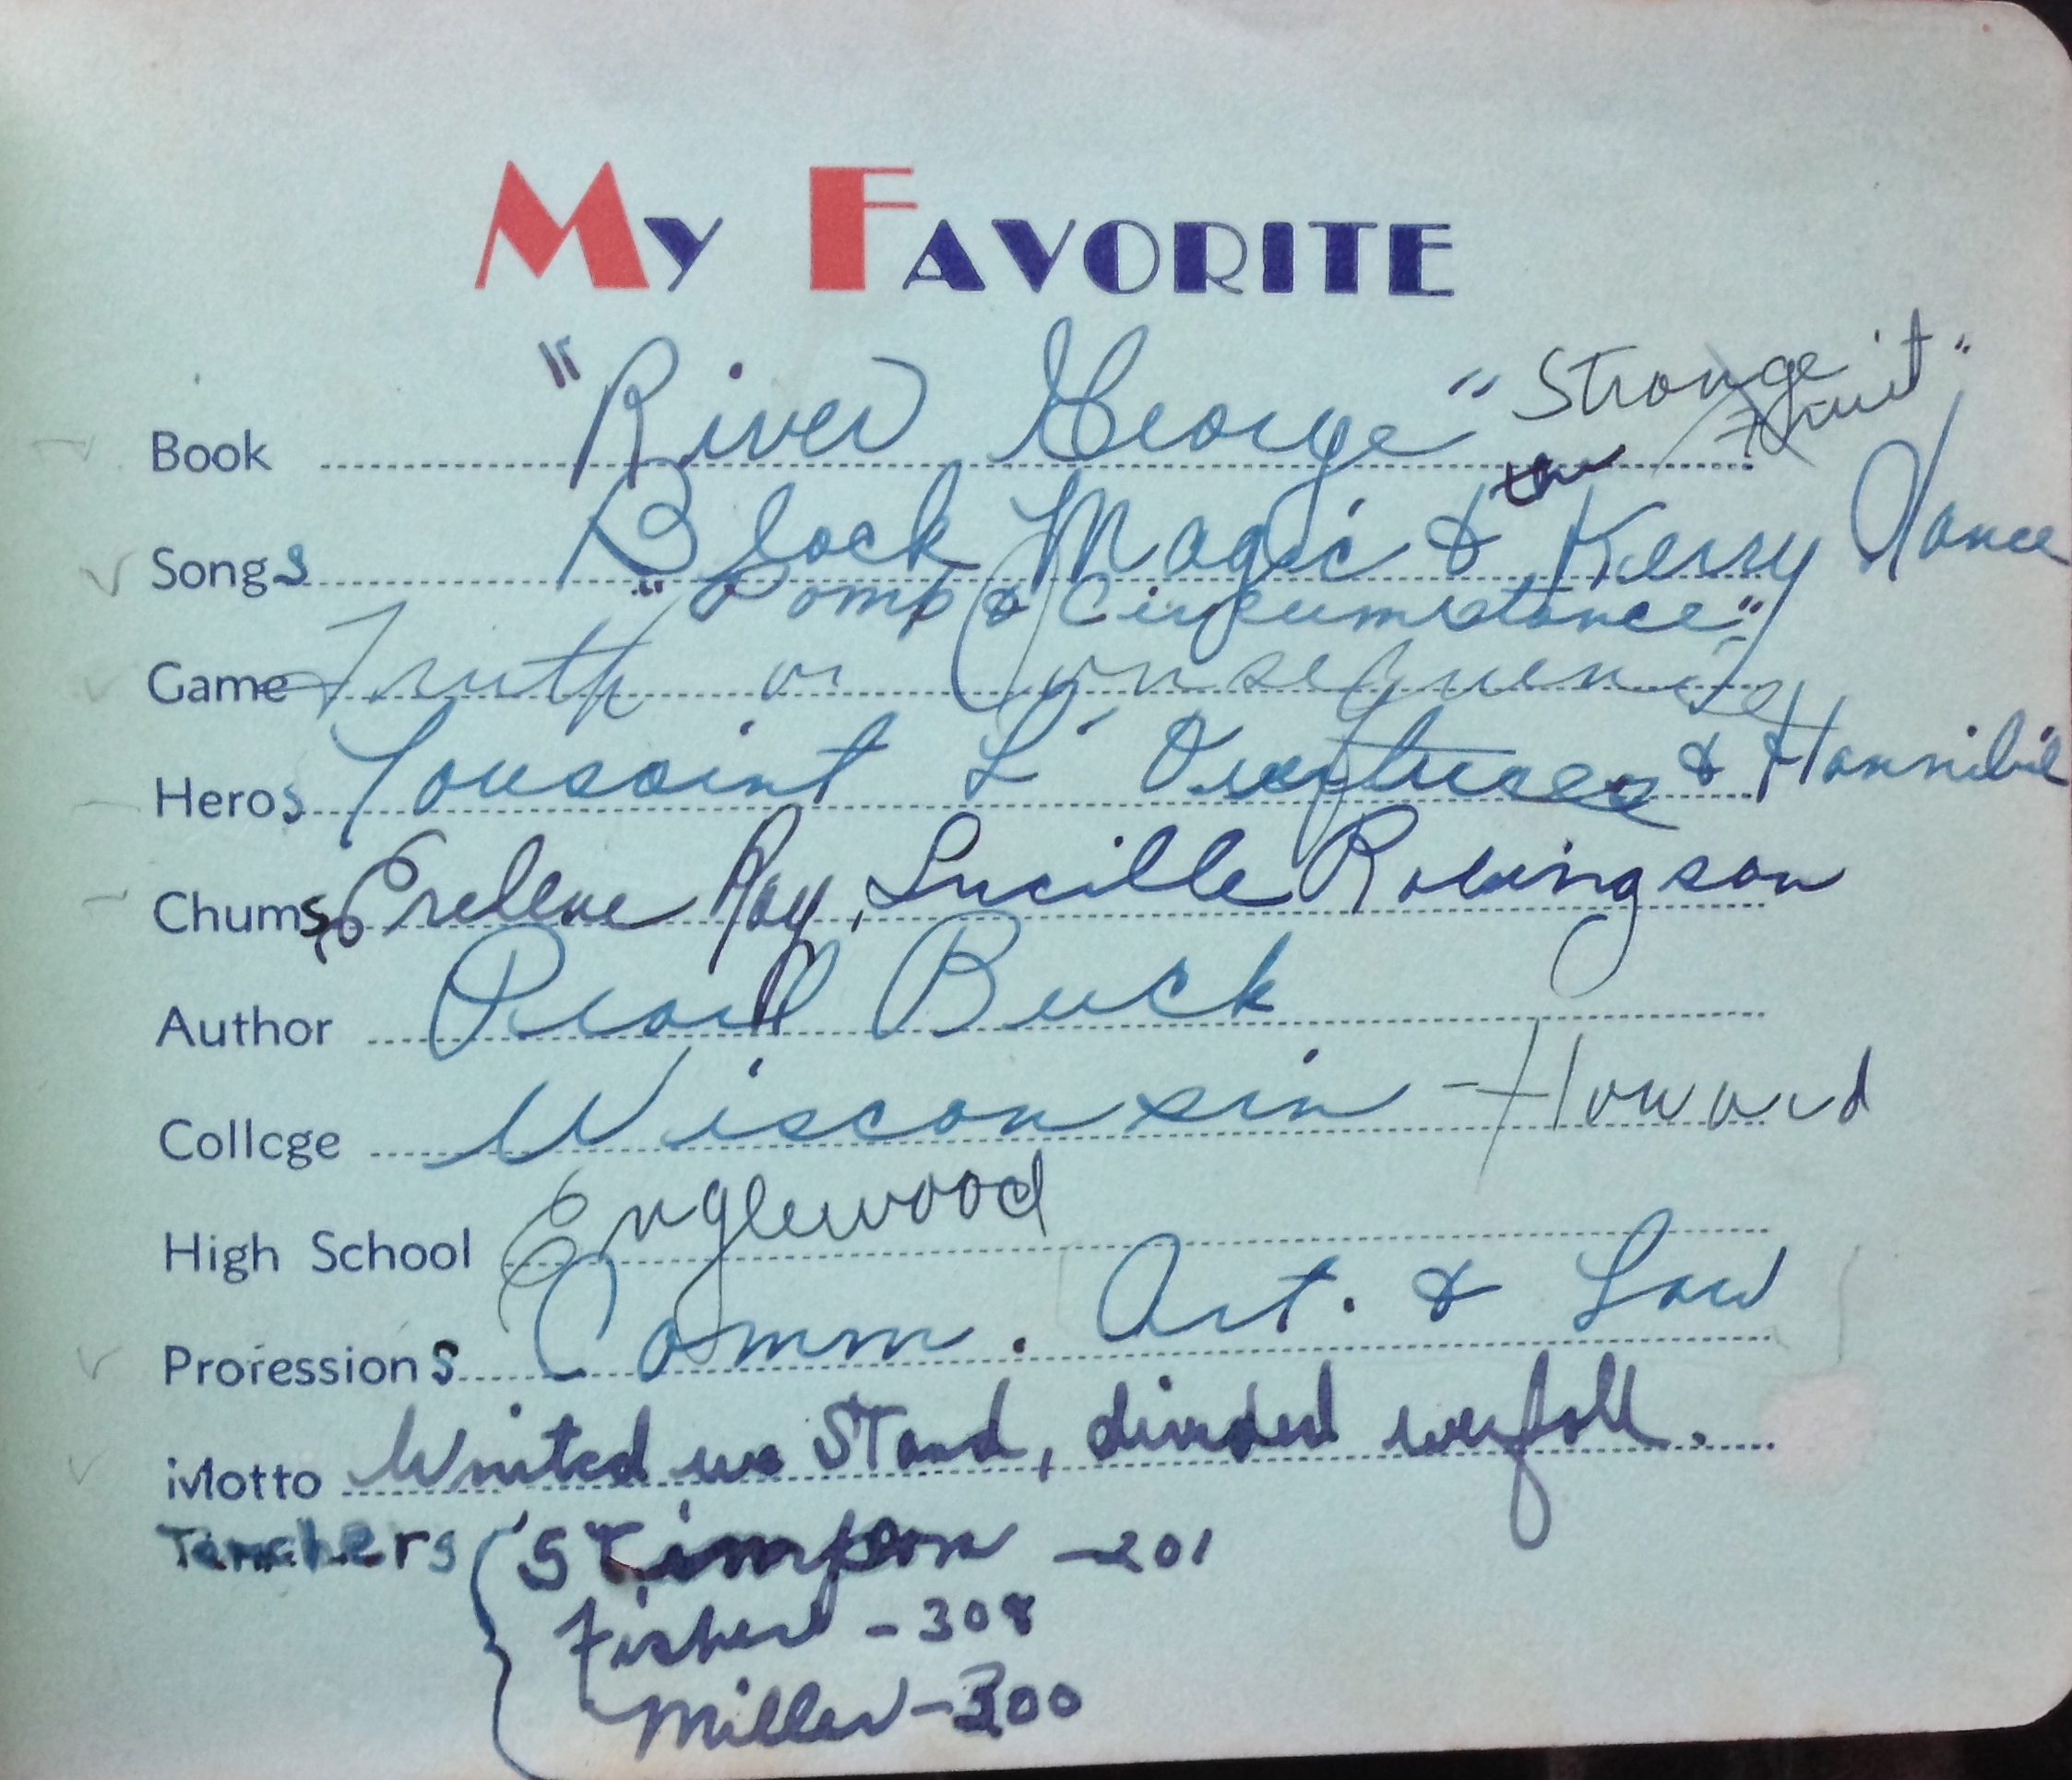 MY FAVORITE
Book "River George" "Strange Fruit"
Songs Black Magic & Kerry Dance
"Pomp & Circumstance"
Game Truth or Consequence
Heros Toussaint L'Ouverture & Hannibal
Chums Erelene Ray, Lucille Robingson
Author Pearl Buck
College Wisconsin - Howard
High School Englewood
Professions Comm. Art. & Law
Motto United we Stand, divided we fall.
Teachers Stimpson - 201
Fisher - 308
Miller - 300